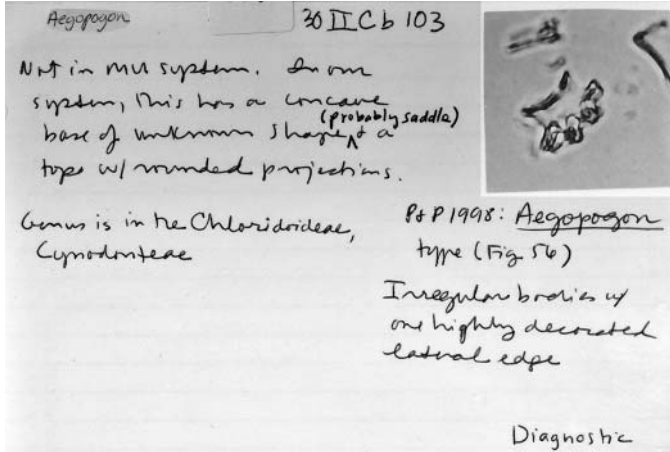 Aegopogon
30 II C b 103
Not in MU system. In our
system, this has a concave
(probably saddle)
base of unknown shape ^ & a
tops w/ rounded projections.
Genus is in the Chloridoideae,
Cynodonteae
P&P 1998: Aegopogon
type (Fig 56)
Irregular bodies w/
one highly decorated
lateral edge
Diagnostic